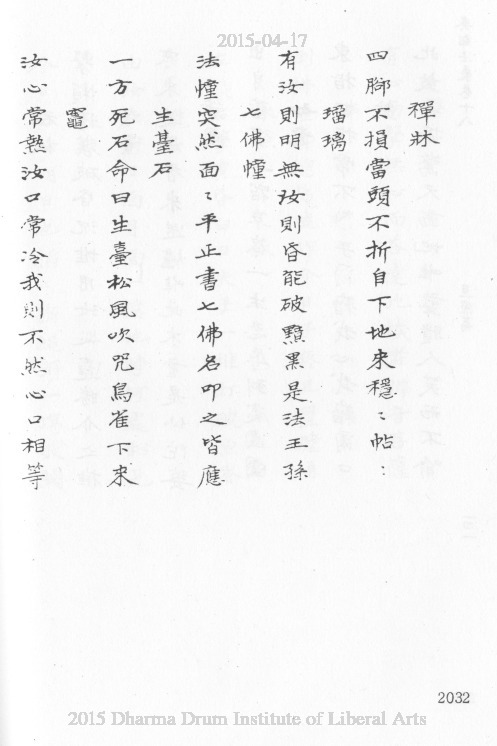 2015-04-17
禪牀
四腳不損當頭不折自下地來穩〻帖〻
瑠璃
有汝則明無汝則昏能破黰黑是法王孫
七佛幢
法幢突然面〻平正書七佛名叩之皆應
生臺石
一方死石命曰生臺松風吹咒烏雀下來
竈
汝心常熱汝口常冷我則不然心口相等
2032
2015 Dharma Drum Institute of Liberal Arts